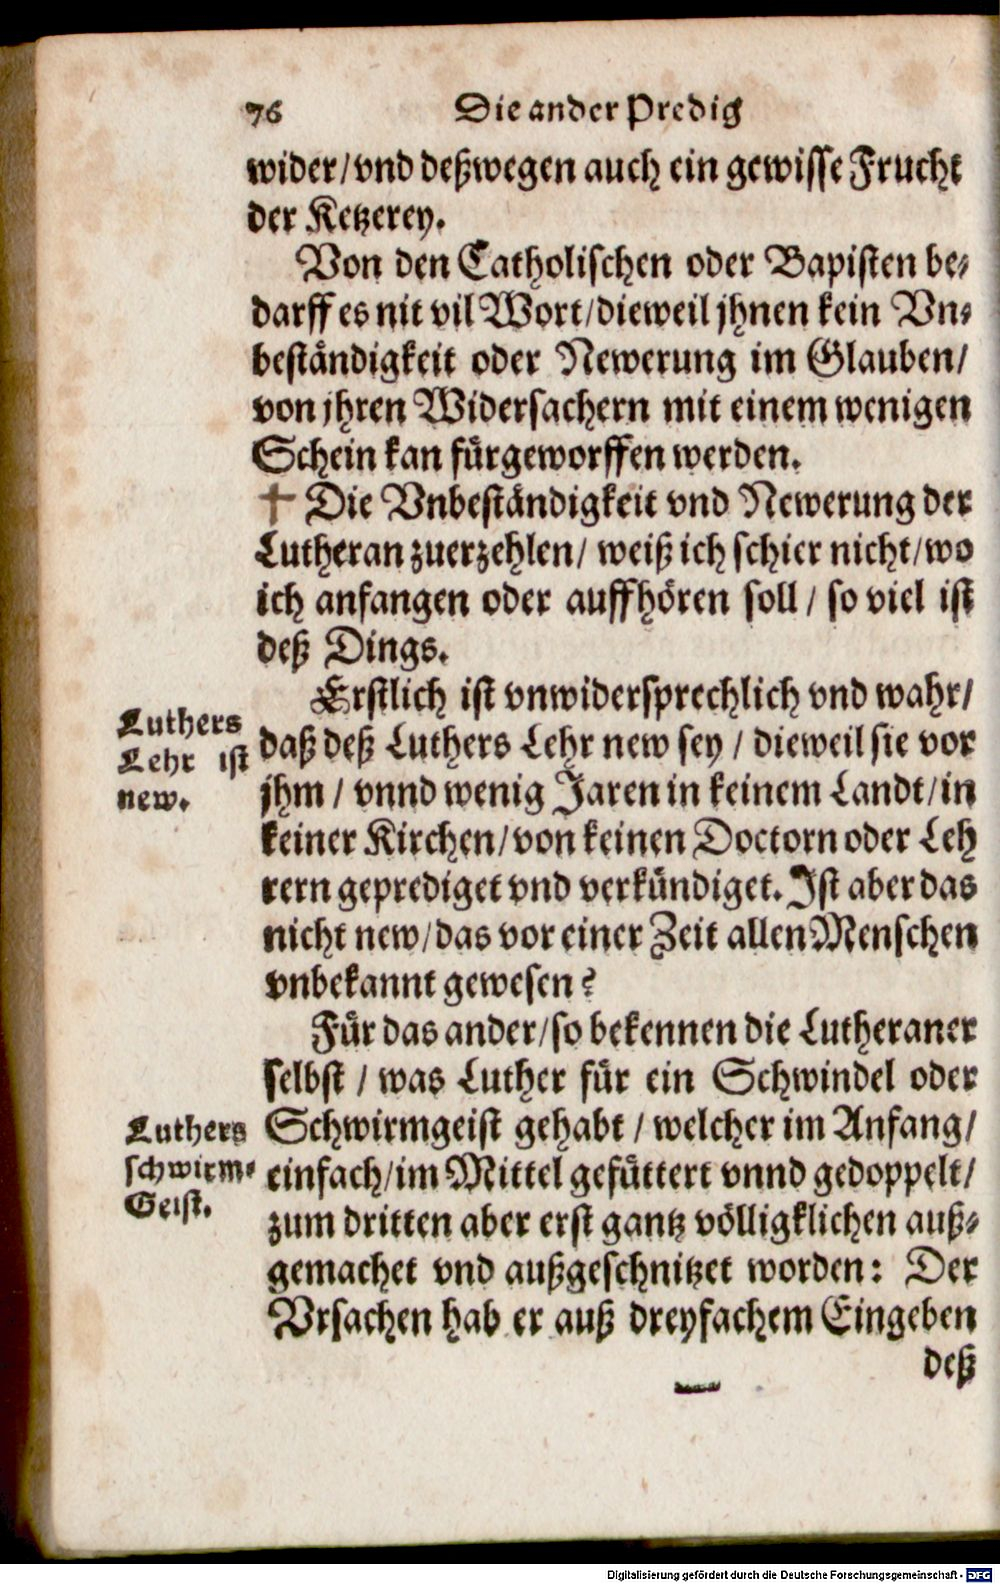 76 Die ander Predig
wider/vnd deßwegen auch ein gewisse Frucht
der Ketzerey.
Von den Catholischen oder Bapisten be-
darff es nit vil Wort/dieweil jhnen kein Vn-
beständigkeit oder Newerung im Glauben/
von jhren Widersachern mit einem wenigen
Schein kan fürgeworffen werden.
† Die Vnbeständigkeit vnd Newerung der
Lutheran zuerzehlen/ weiß ich schier nicht/wo
ich anfangen oder auffhören soll / so viel ist
deß Dings.
Erstlich ist vnwidersprechlich vnd wahr/
Luthers
Lehr ist
new.
daß deß Luthers Lehr new sey / dieweil sie vor
jhm / vnnd wenig Jaren in keinem Landt/in
keiner Kirchen/von keinen Doctorn oder Leh
rern geprediget vnd verkündiget. Ist aber das
nicht new/das vor einer Zeit allen Menschen
vnbekannt gewesen?
Für das ander/so bekennen die Lutheraner
selbst / was Luther für ein Schwindel oder
Luthers
schwirm-
Geist.
Schwirmgeist gehabt / welcher im Anfang/
einfach/im Mittel gefüttert vnnd gedoppelt/
zum dritten aber erst gantz völligklichen auß-
gemachet vnd außgeschnitzet worden: Der
Vrsachen hab er auß dreyfachem Eingeben
deß
Digitalisierung gefördert durch die Deutsche Forschungsgemeinschaft - DFG